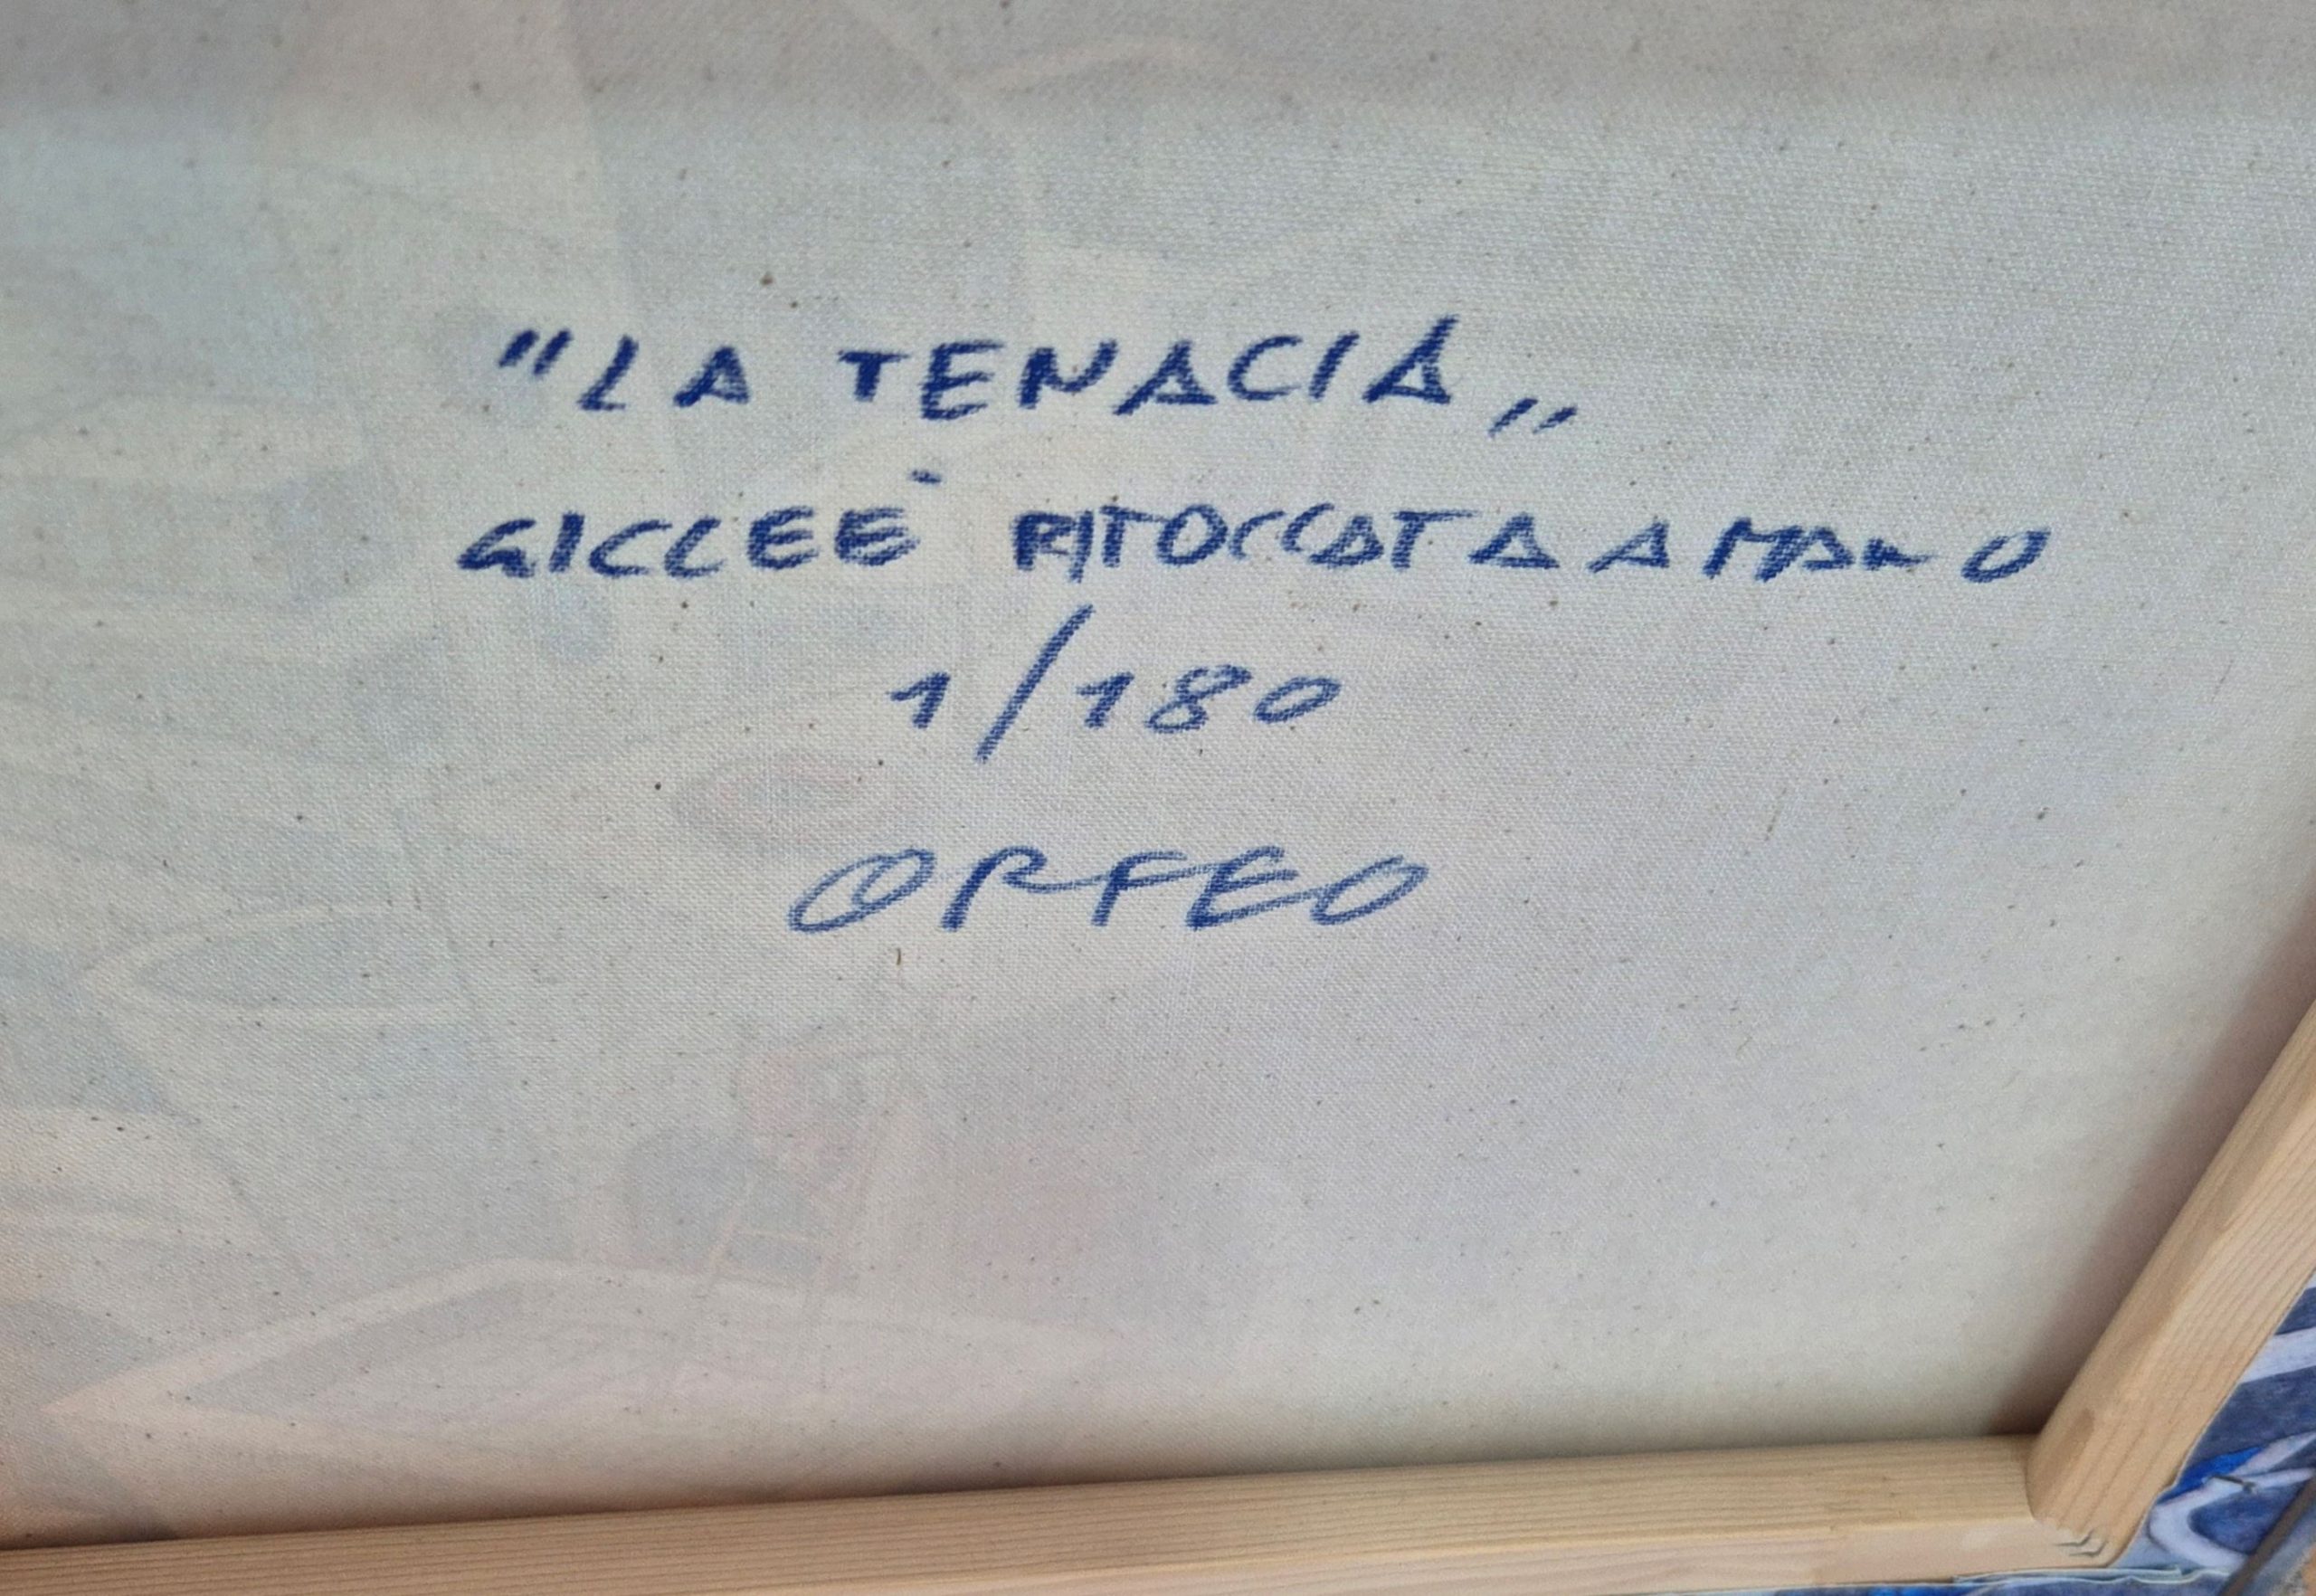 "LA TENACIA„
GICLEÈ RITOCCATA A MANO
1/180
ORFEO